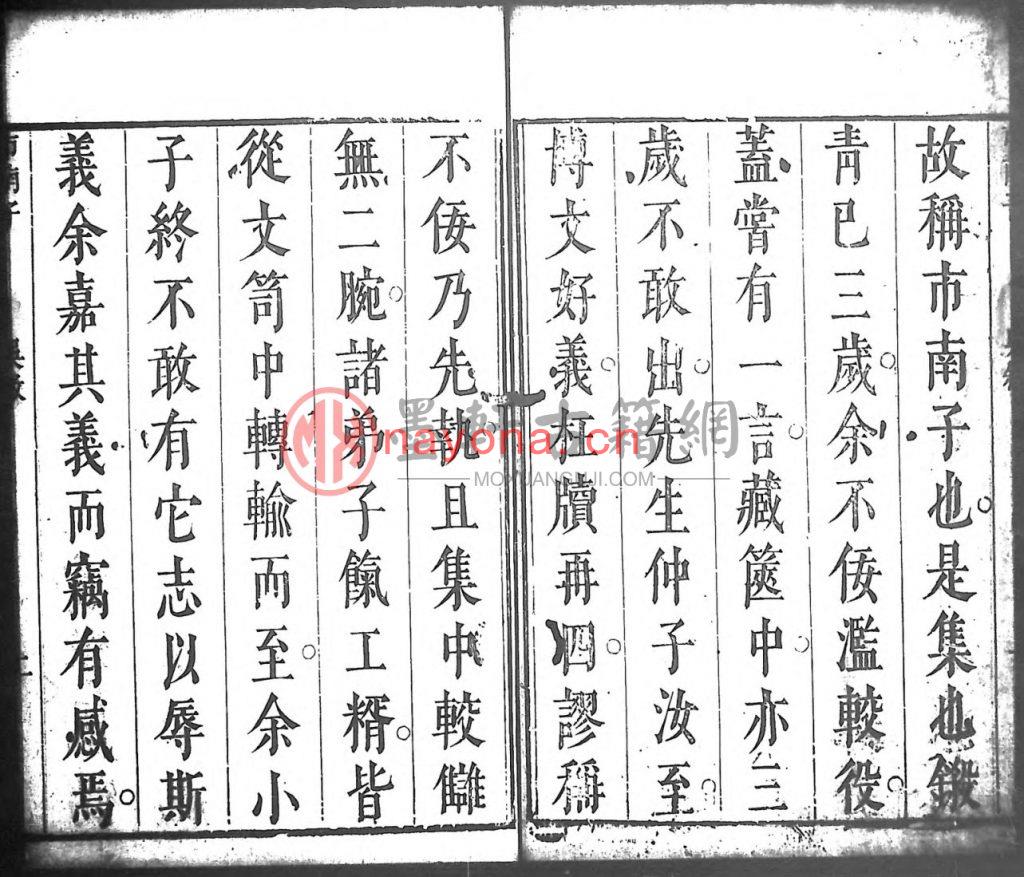 故稱市南子也是集也鍛
青已三歲余不佞濫較役
蓋嘗有一言藏篋中亦三
歲不敢出先生仲子汝至
博文好義枉牘再四謬稱
不佞乃先執且集中較讎
無二腕諸弟子餼工糈皆
從文笥中轉輸而至余小
子終不敢有它志以辱斯
義余嘉其義而竊有感焉
墨軒古籍網
nayona.cn